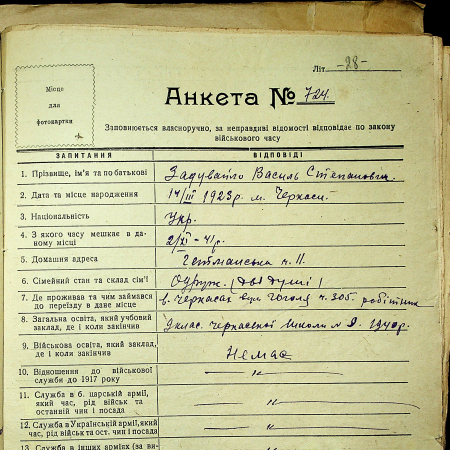 Літ. -28-
Місце
для
фотокартки
Анкета № 724.
Заповнюється власноручно, за неправдиві відомості відповідає по закону
військового часу
ЗАПИТАННЯ ВІДПОВІДІ
1. Прізвище, ім'я та по батькові Василь Степанович.
2. Дата та місце народження 14/III 1923р. м. Черкаси.
3. Національність Укр.
4. З якого часу мешкає в да-
ному місці 2/XI - 41р.
5. Домашня адреса Гетманська ч. 11.
6. Сімейний стан та склад сім'ї Одруж. (дві душі)
7. Де проживав та чим займався
до переїзду в дане місце в. Черкасах вул. Гоголя ч. 305. робітник
8. Загальна освіта, який учбовий
заклад, де і коли закінчив 9 клас. Черкаської школи № 1940р.
9. Військова освіта, який заклад,
де і коли закінчив Немає
10. Відношення до військової
служби до 1917 року — " —
11. Служба в б. царській армії,
який час, рід військ та
останній чин і посада — " —
12. Служба в Українській армії, який
час, рід військ та ост. чин і посада — " —
13. Служба в інших арміях (за ви-